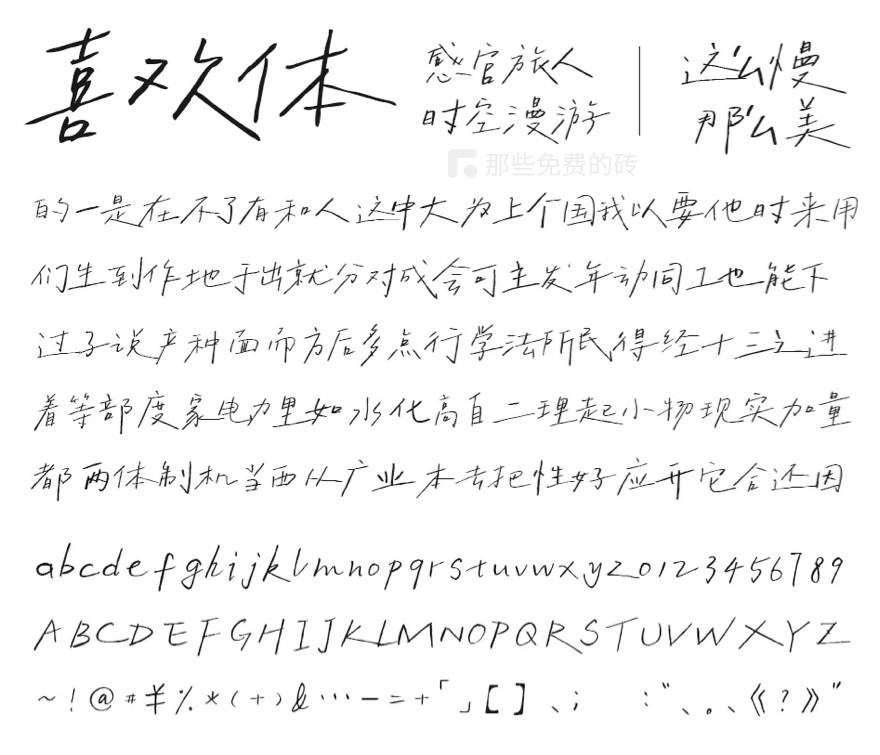 喜欢体
感官旅人
时空漫游
这么慢
那么美
那些免费的砖
的一是在不了有和人这中大为上个国我以要他时来用
们生到作地于出就分对成会可主发年动同工也能下
过子说产种面而方后多点行学法所民得经十三之进
着等部度家电力里如水化高自二理起小物现实加量
都两体制机当西从广业本去把性好应开它合还因
abcdefghijklmnopqrstuvwxyz0123456789
ABCDEFGHIJKLMNOPQRSTUVWXYZ
~!@#¥%*(+)&…-=+「」[]、; :“、。、《?》”